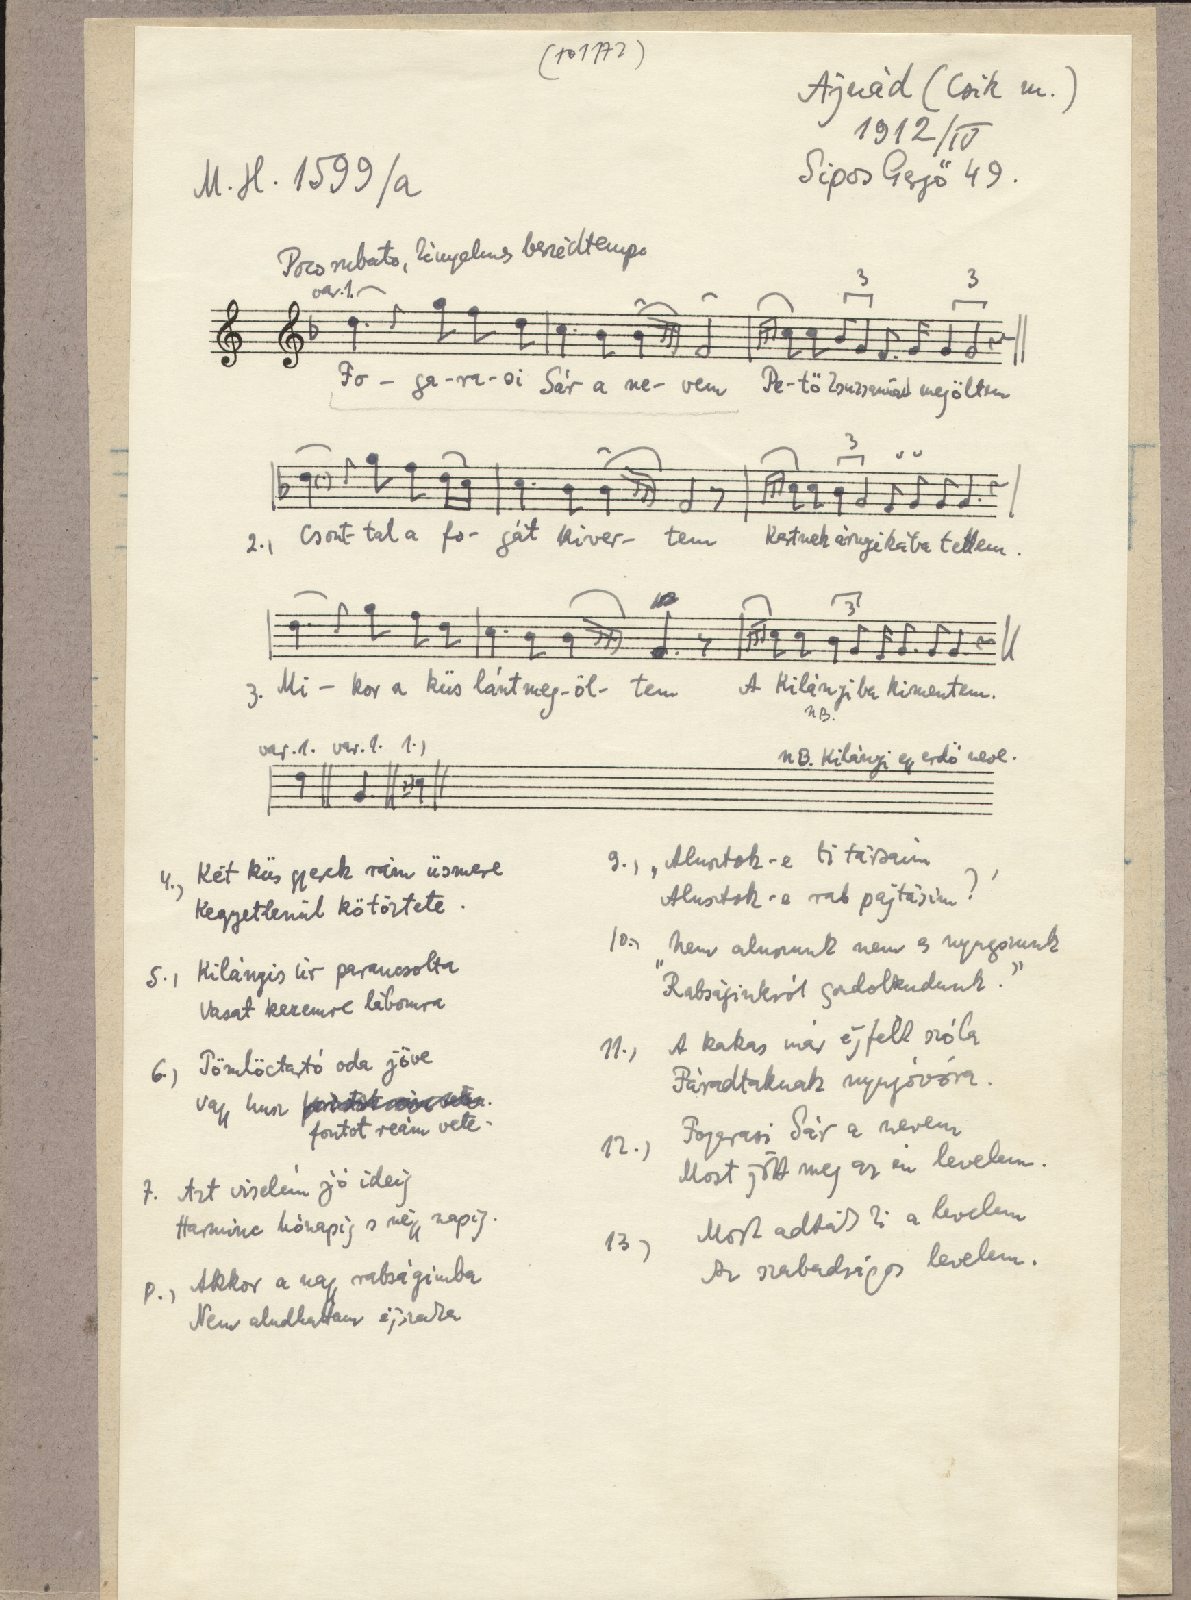 (101772)
Ajnád (Csik m.)
1912/IV
Sipos Gergő 49.
M.H. 1599/a
Poco rubato, kényelmes beszédtempo
var.1.
3 3
Fo - ga-ra-si Sár a ne- vem Pe-tő Zsuzsannát megöltem
3
2., Csont-tal a fo- gát kiver- tem Kertnek árnyikába tettem.
3
3. Mi - kor a küs lántmeg-öl- tem A Kilángiba kimentem.
NB.
var.1. var.1. 1.,
NB. Kilángi egy erdő neve.
4., Két küs gyerek rám üsmere
Kegyetlenül kötöztete.
5., Kilángis úr parancsolta
Vasat kezemre lábomra
6., Tömlöctartó oda jőve
Vagy husz
fontot reám vete.
7. Azt viselém jó ideig
Harminc hónapig s négy napig.
8., Akkor a nagy rabságimba
Nem aludhattam éjszaka
9., „Alusztok-e ti társaim
Alusztok-e rab pajtásim?"
10., Nem aluszunk nem es nyugszunk
"Rabságinkról gondolkudunk."
11., A kakas már éjfélt szóla
Fáradtaknak nyugóvóra.
12., Fogarasi Sár a nevem
Most jött meg az én levelem.
13., Most adták ki a levelem
Az szabadságos levelem.